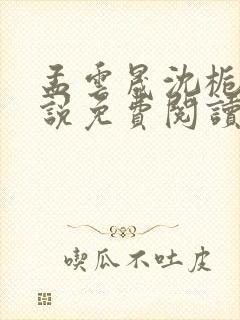 孟雲晟沈梔
說免費閱讀
喫瓜不吐皮